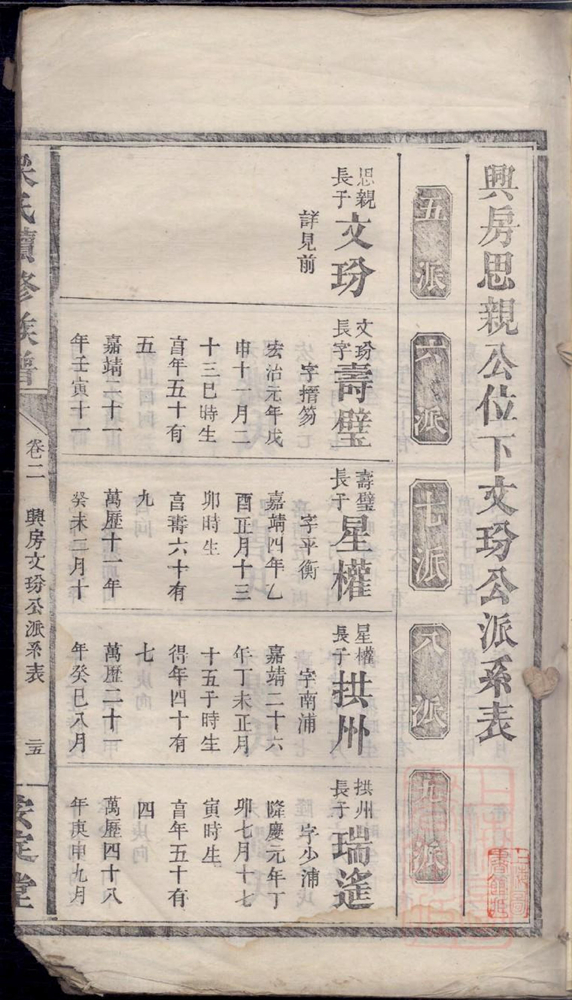 興房思親公位下文玢公派系表
五派
六派
七派
八派
九派
思親
長子
文玢
詳見前
文玢
長字
壽璧
字搢笏
宏治元年戊
申十一月二
十三巳時生
亯年五十有
五
嘉靖二十一
年壬寅十一
壽璧
長子
星權
字平衡
嘉靖四年乙
酉正月十三
卯時生
亯壽六十有
九
萬歷十一年
癸未三月十
星權
長子
拱州
字南浦
嘉靖二十六
年丁未正月
十五子時生
得年四十有
七
萬歷二十一
年癸巳八月
拱州
長子
瑞遙
字少浦
隆慶元年丁
卯七月十七
寅時生
亯年五十有
四
萬歷四十八
年庚申九月
氏續修族譜
卷二
興房文玢公派系表
二五
安定堂